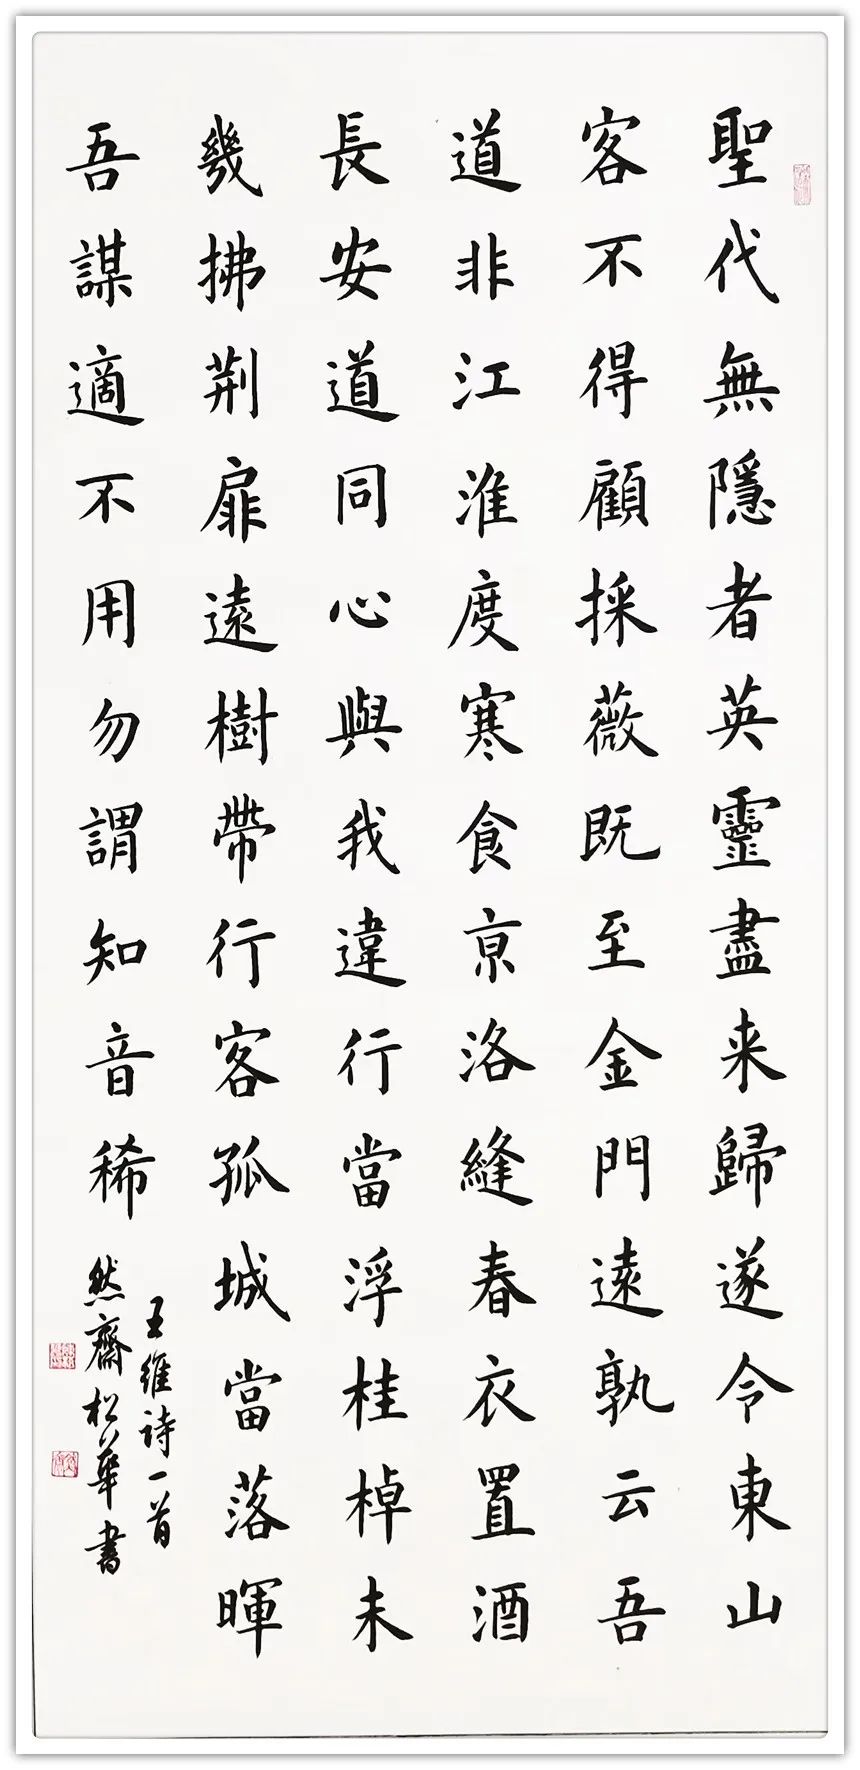 聖代無隱者英靈盡来歸遂令東山
客不得顧採薇既至金門遠孰云吾
道非江淮度寒食京洛縫春衣置酒
長安道同心與我違行當浮桂棹未
幾拂荆扉遠樹帶行客孤城當落暉
吾謀適不用勿謂知音稀
王維诗一首
然齋松華書